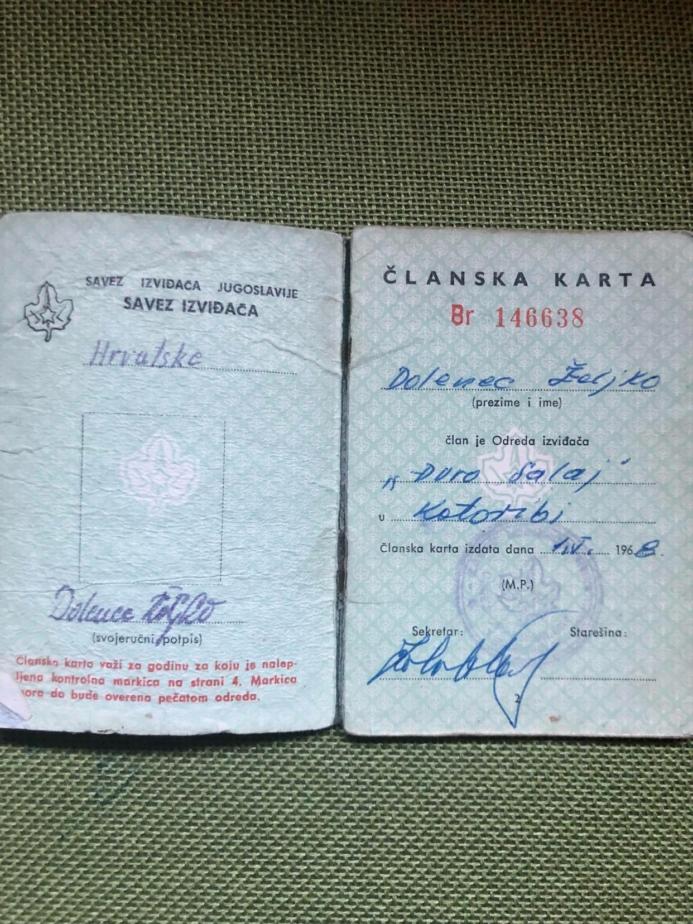 SAVEZ IZVIĐAČA JUGOSLAVIJE
SAVEZ IZVIĐAČA
Hrvatske
Dolenec Željko
(svojeručni potpis)
Članska karta važi za godinu za koju je nalep-
ljena kontrolna markica na strani 4. Markica
mora da bude overena pečatom odreda.
ČLANSKA KARTA
Br 146638
Dolenec Željko
(prezime i ime)
član je Odreda izviđača
"Đuro Salaj"
u Kotoribi
Članska karta izdata dana 1.IV. 1968.
(M.P.)
Sekretar: Starešina:
2